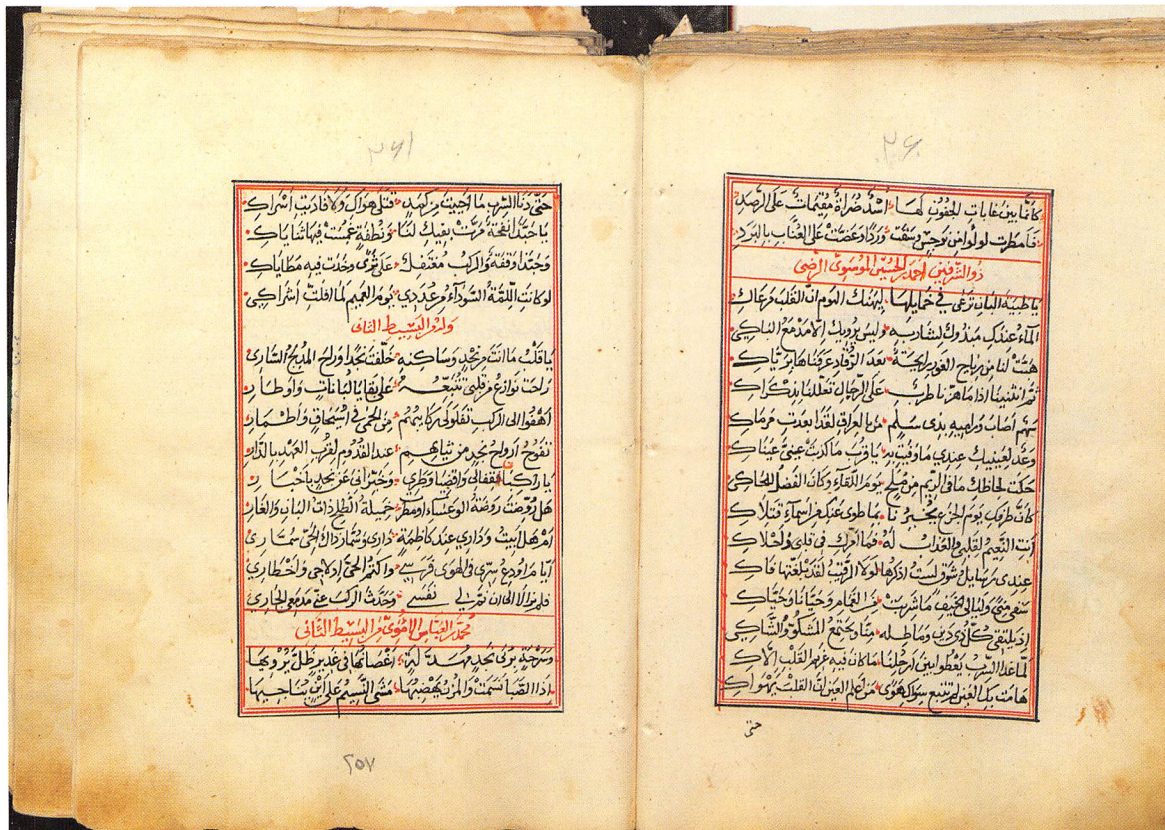 ٢٦٠
كأنما بين غابات الجفون لها أسد ضراة مقيمات على الرصد
فأمطرت لولوا من نرجس وسقت وردا وعضت على العناب بالبرد
ذو الشرفين احمد بن الحسين الموسوي الرضي
يا ظبية البان ترعى في خمايلها ليهنك اليوم ان القلب مرعاك
الماء عندك مبذول لشاربه وليس يرويك إلا مدمع الباكي
هبت لنا من رياح الغور رايحة بعد الرقاد عرفناها برياك
ثم انثنينا اذا ما هزنا طرب على الرحال تعللنا بذكراك
سهم أصاب وراميه بذي سلم من بالعراق لقد ابعدت مرماك
وعد لعينيك عندي ما وفيت به يا قرب ما كذبت عيني عيناك
حكت لحاظك ما في الريم من ملح يوم اللقاء وكان الفضل للحاكي
كأن طرفك يوم الجزع يخبرنا بما طوى عنك من اسماء قتلاك
أنت النعيم لقلبي والعذاب له فما أمرك في قلبي وأحلاك
عندي رسايل شوق لست اذكرها لولا الرقيب لقد بلغتها فاك
سقى منى وليالي الخيف ما شربت من الغمام وحيانا وحياك
إذ يلتقي كل ذي دين وماطله منا ويجتمع المشكو والشاكي
لما غدا السرب يعطو بين أرحلنا ما كان فيه غريم القلب الاك
هامت بك العين لم تتبع سواك هوى من أعلم العين ان القلب يهواك
حتى
٢٦١
حتى دنا السرب ما أحييت من كمد قتلى هواك ولا فاديت أسراك
يا حبذا نفحة مرت بفيك لنا ونطفة غمست فيها ثناياك
وحبذا وقفة والركب مغتفل على ثرى وخدت فيه مطاياك
لو كانت اللمة السوداء من عددي يوم الغميم لما افلت أشراكي
وله من البسيط الثاني
يا قلب ما انت من نجد وساكنه خلفت نجدا وراء المدلج الساري
راحت نوازع من قلبي تتبعه على بقايا لبانات وأوطار
أهفوا الى الركب تعلو لي ركايبهم من الحمى في أسيحاق وأطمار
تفوح أرواح نجد من ثيابهم عند القدوم لقرب العهد بالدار
يا راكبان قفا لي واقضيا وطري وخبراني عن نجد بأخبار
هل روضت روضة الوعساء او مطرت خميلة الطلح ذات البان والغار
أم هل أبيت وداري عند كاظمة داري وسمار ذاك الحي سماري
أيام اودع سري في الهوى فرسي واكتم الحي إدلاجي وأخطاري
فلم يزالا الى ان نم بي نفسي وحدث الركب عني مدمعي الجاري
محمد بن العباس الاموي من البسيط الثاني
وسرحة بربى نجد مهدلة أغصانها في غدير ظل يرويها
اذا الصبا نسمت والمزن يهضبها مشى النسيم على أين يناجيها
٢٥٧